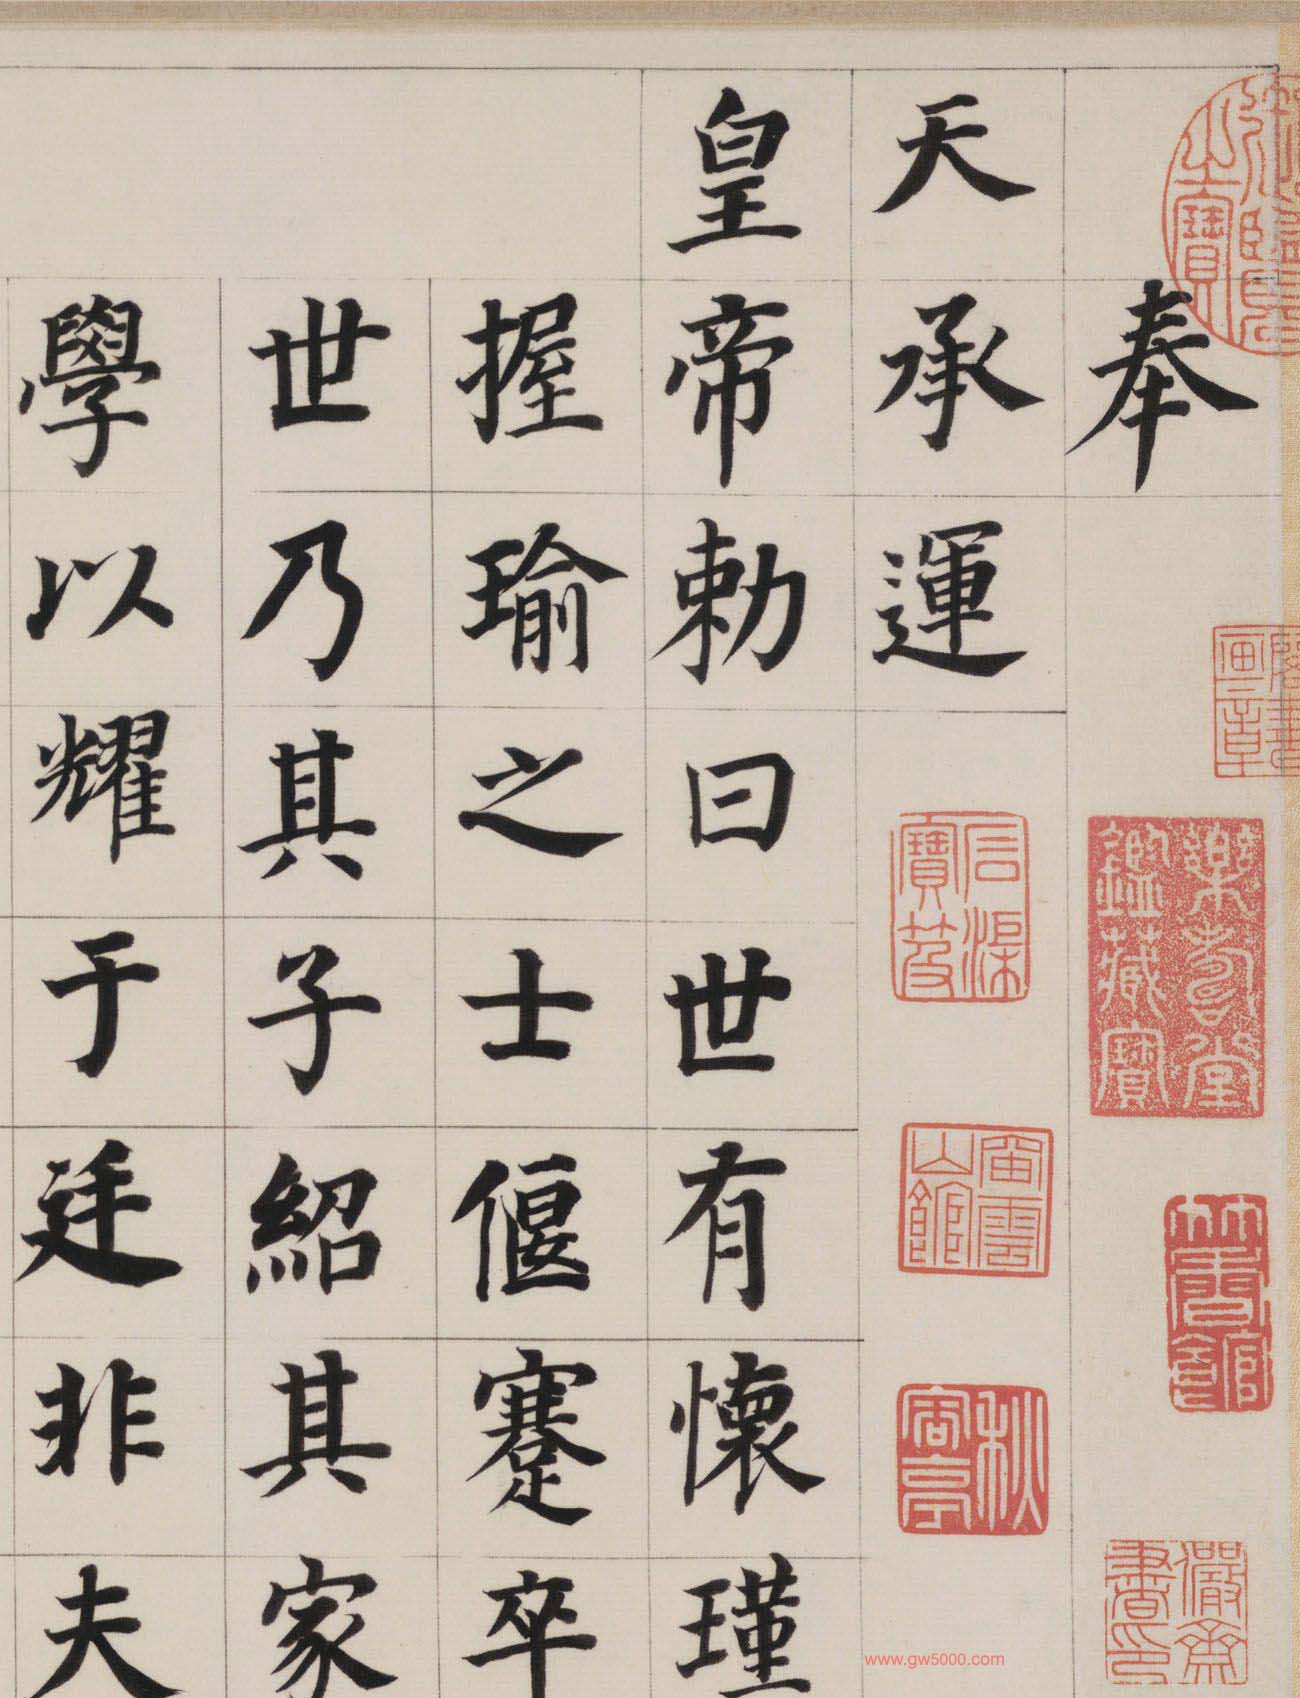 奉
天承運
皇帝勅曰世有懷瑾
握瑜之士偃蹇卒
世乃其子紹其家
學以耀于廷非夫
樂壽堂鑑藏寶
石渠寶笈
www.gw5000.com